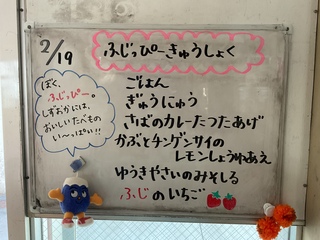 2/19
ふじっぴーきゅうしょく
ぼく、
ふじっぴー。
しずおかには、
おいしいたべもの
い〜っぱい!!
ごはん
ぎゅうにゅう
さばのカレーたつたあげ
かぶとチンゲンサイの
レモンしょうゆあえ
ゆうきやさいのみそしる
ふじのいちご